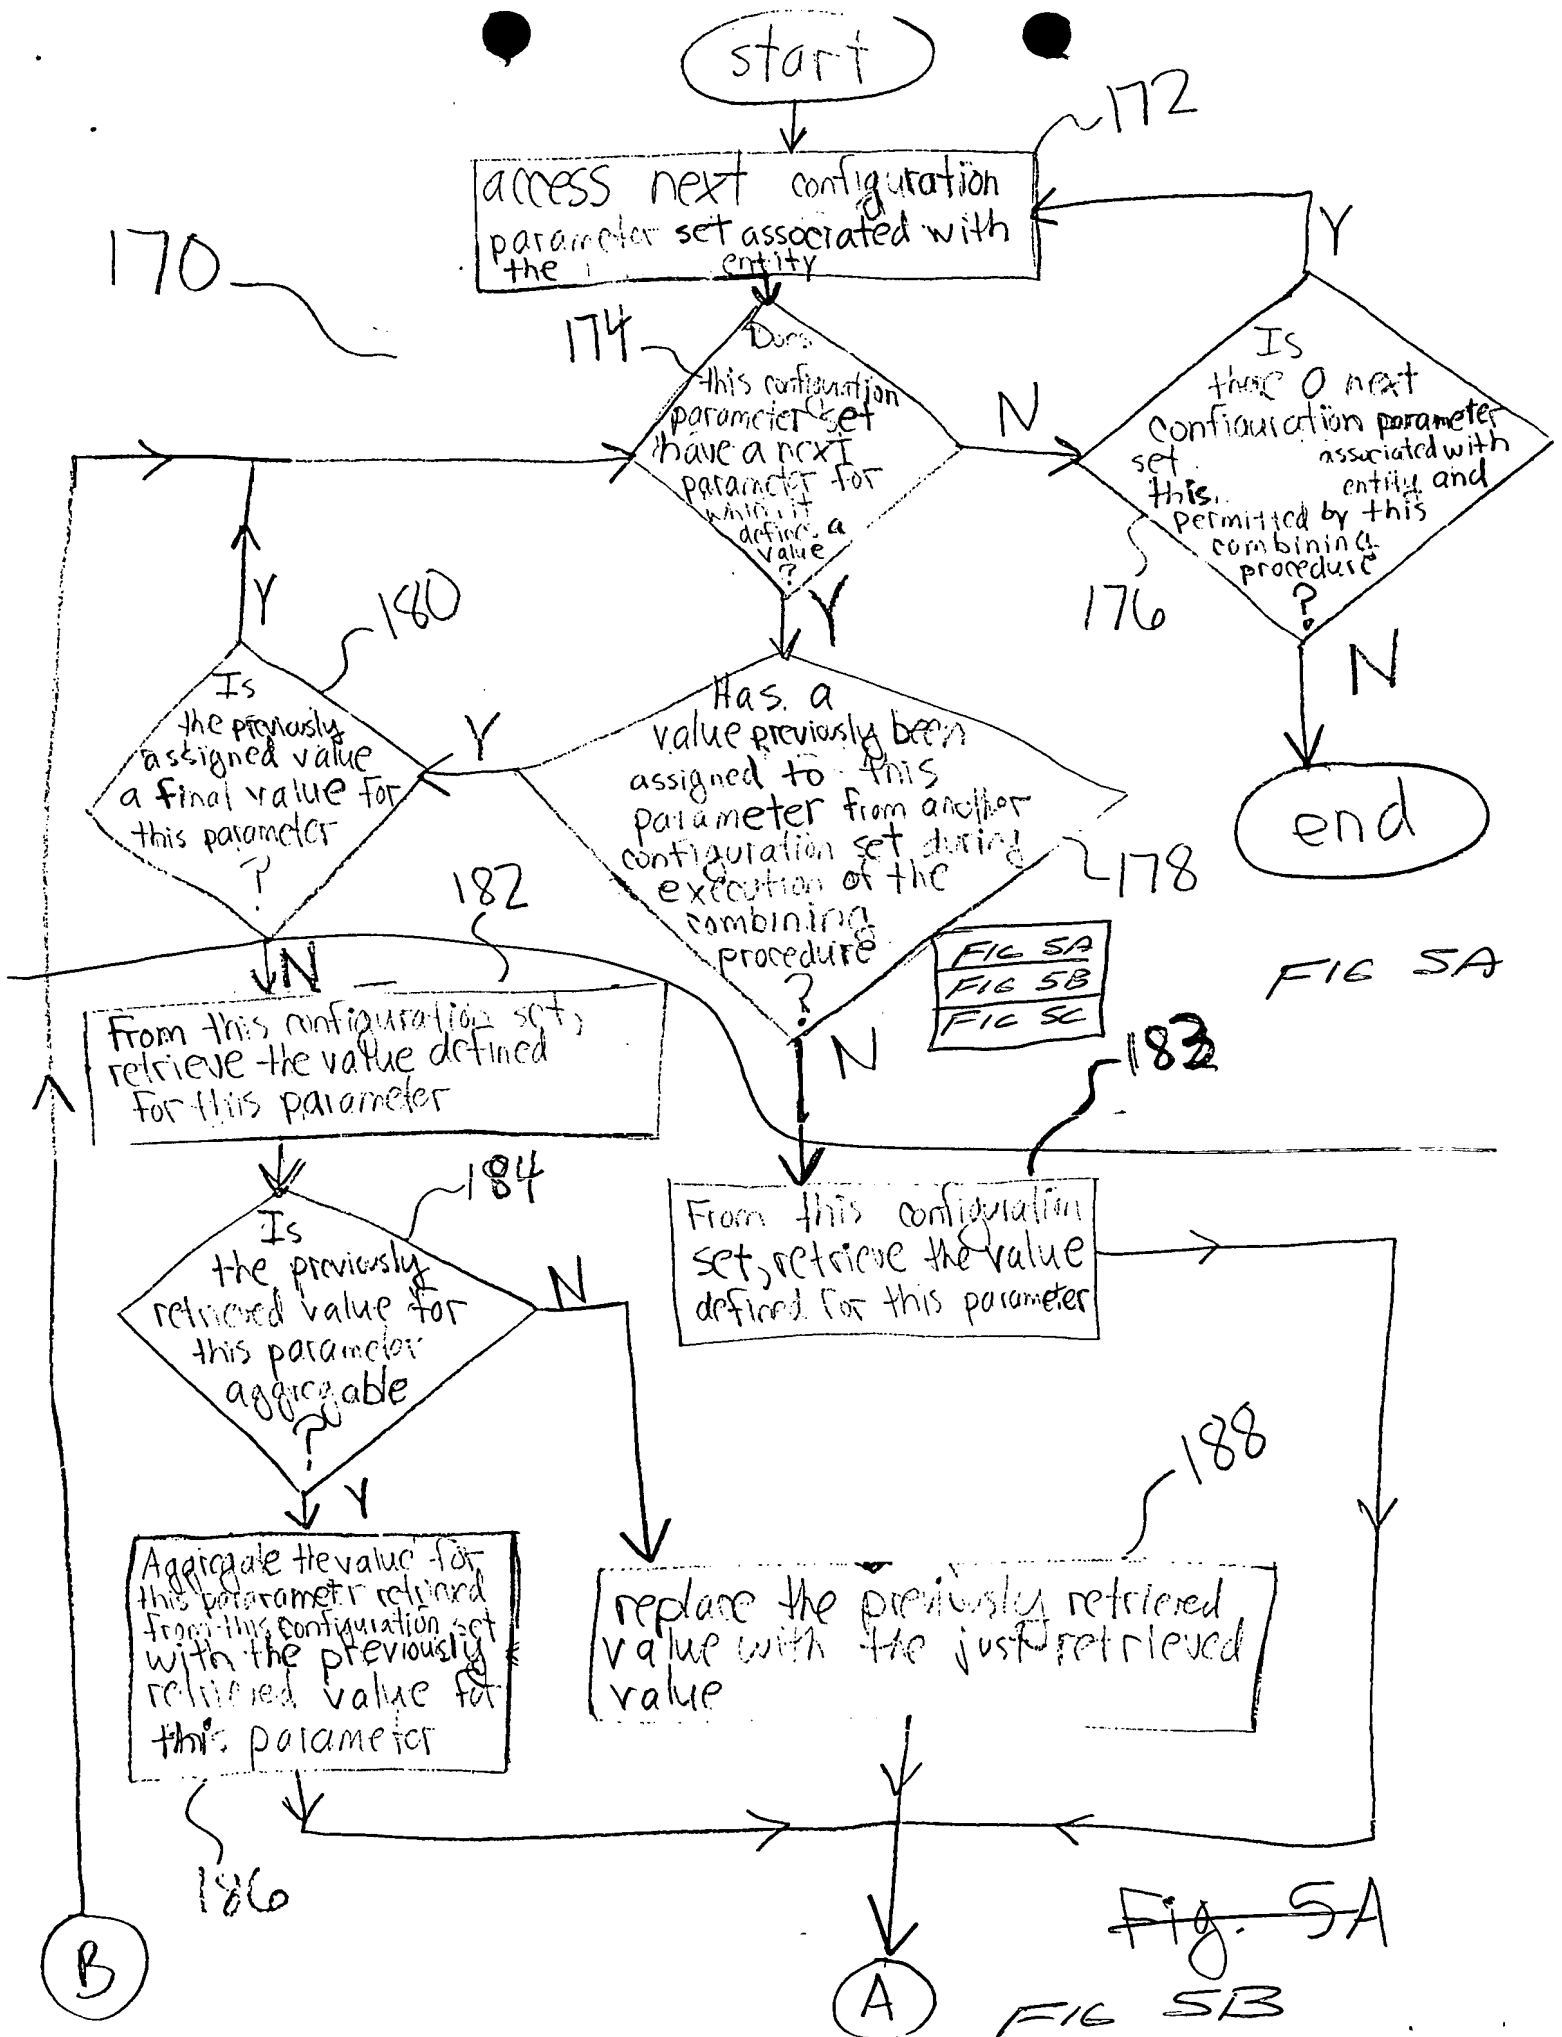 start
172
access next configuration
parameter set associated with
the entity
170
174
Does
this configuration
parameter set
have a next
parameter for
which it
defines a
value
?
N
Y
Is
there a next
configuration parameter
set associated with
this entity and
permitted by this
combining
procedure
?
176
Y
N
end
Y
180
Is
the previously
assigned value
a final value for
this parameter
?
Y
Has a
value previously been
assigned to this
parameter from another
configuration set during
execution of the
combining
procedure
?
178
N
FIG 5A
FIG 5B
FIG 5C
FIG 5A
182
N
From this configuration set,
retrieve the value defined
for this parameter
183
From this configuration
set, retrieve the value
defined for this parameter
184
Is
the previously
retrieved value for
this parameter
aggregable
?
N
Y
188
Aggregate the value for
this pararametr retrieved
from this configuration set
with the previously
retrieved value for
this parameter
186
replace the previously retrieved
value with the just retrieved
value
B
A
Fig. 5A
FIG 5B